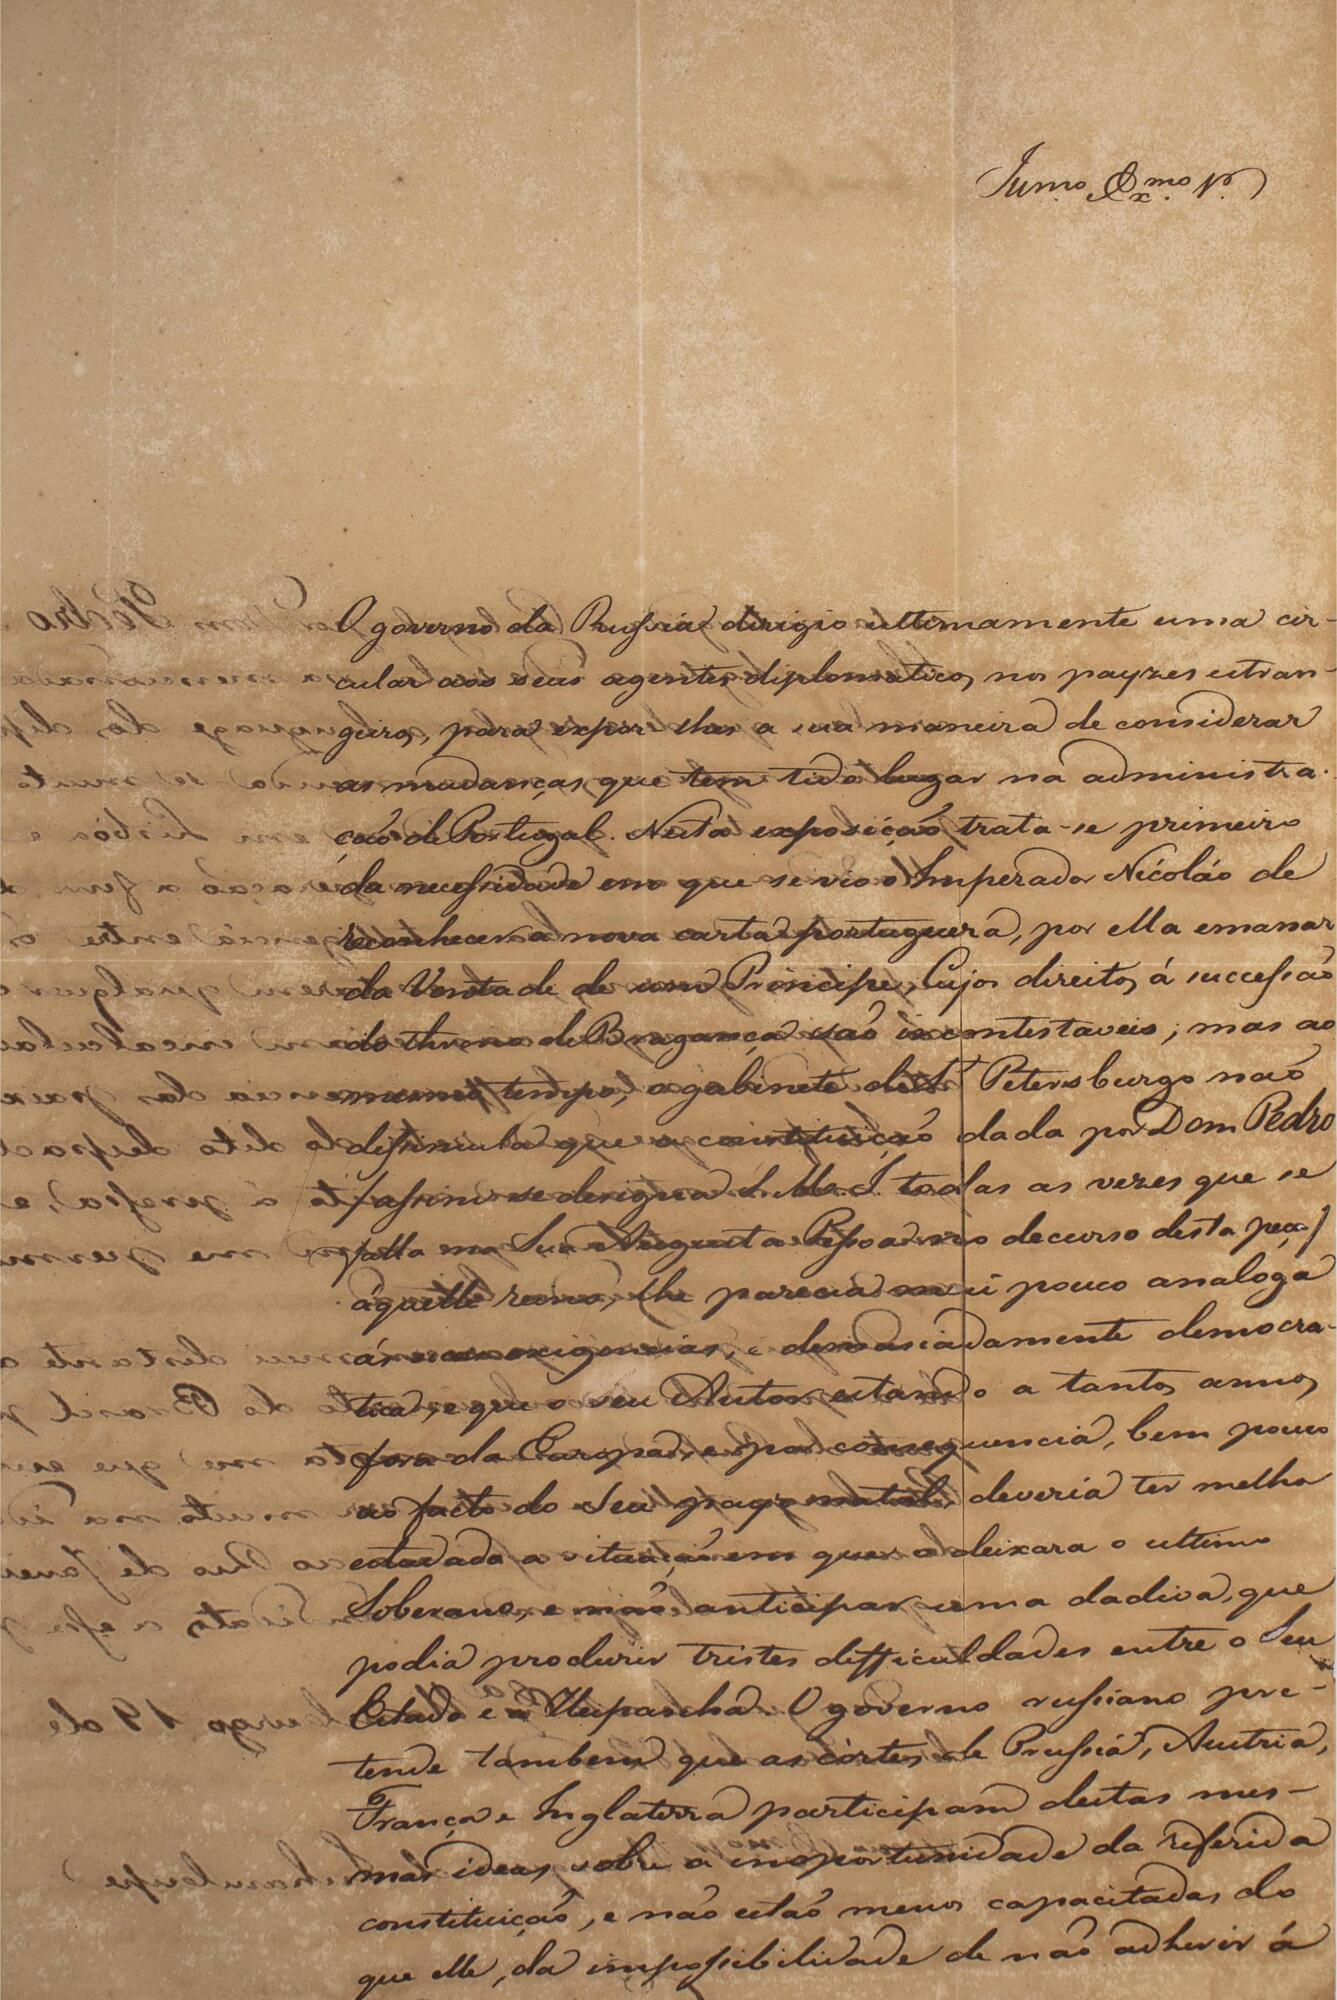 Illmo. Exmo. Sr.
O governo da Russia dirigio ultimamente uma cir-
cular aos seus agentes diplomaticos nos payzes estran-
geiros, para expor-lhes a sua maneira de considerar
as mudanças que tem tido lugar na administra-
ção de Portugal. Nesta exposição trata-se primeiro
da necessidade em que se vio o Imperador Nicoláo de
reconhecer a nova carta portugueza, por ella emanar
da Vontade de um Principe, Cujos direitos á successão
do throno de Bragança são incontestaveis; mas ao
mesmo tempo, o gabinete de St. Petersburgo não
dissimula que a constituição dada por Dom Pedro
/assim se designa S. M. I. todas as vezes que se
falla na Sua Augusta Pessoa no decurso desta peça/
áquelle reino, lhe parecia mui pouco analoga
ás suas exigencias, e demasiadamente democra-
tica, e que o seu Autor estando a tantos annos
fora da Europa, e por consequencia, bem pouco
ao facto do Seu payz natal, deveria ter melhor
estudado a situação em que o deixara o ultimo
Soberano, e não anticipar uma dadiva, que
podia produzir tristes difficuldades entre o Seu
Estado e a Hespanha. O governo russiano pre-
tende tambem que as côrtes de Prussia, Austria,
França e Inglaterra participam destas mes-
mas ideas sobre a inoportunidade da referida
constituição, e não estão menos capacitadas do
que elle, da impossibilidade de não adherir á